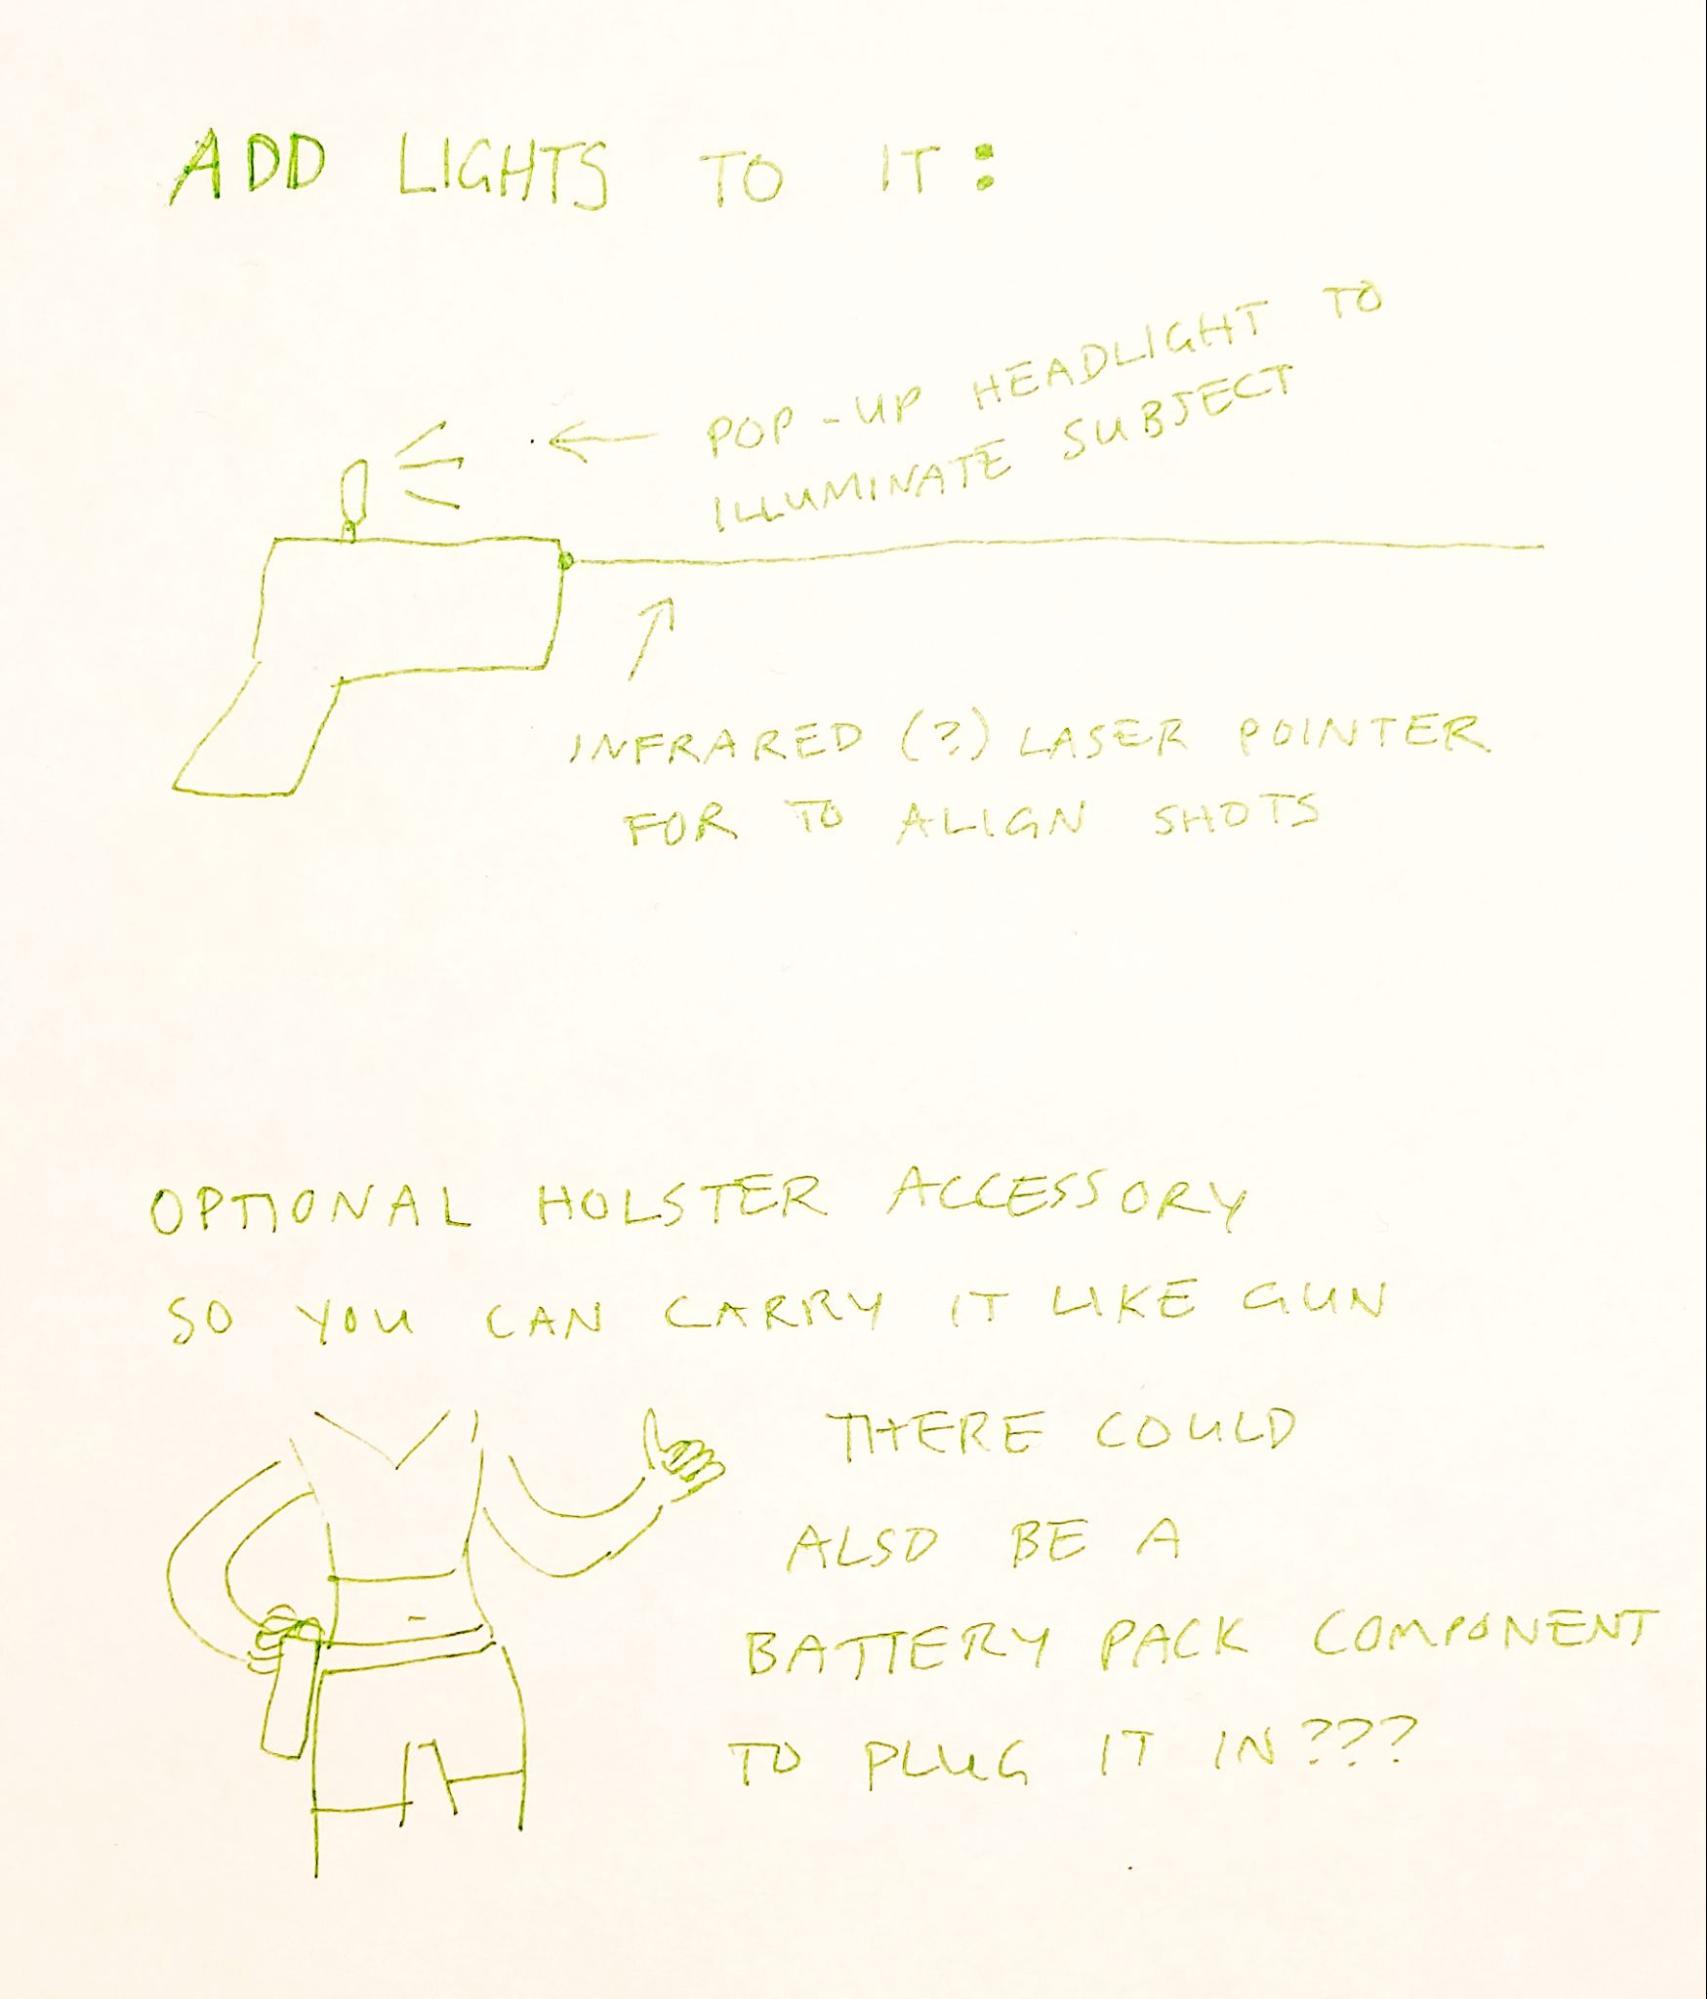 ADD LIGHTS TO IT:
POP-UP HEADLIGHT TO
ILLUMINATE SUBJECT
INFRARED (?) LASER POINTER
FOR TO ALIGN SHOTS
OPTIONAL HOLSTER ACCESSORY
SO YOU CAN CARRY IT LIKE GUN
THERE COULD
ALSO BE A
BATTERY PACK COMPONENT
TO PLUG IT IN???